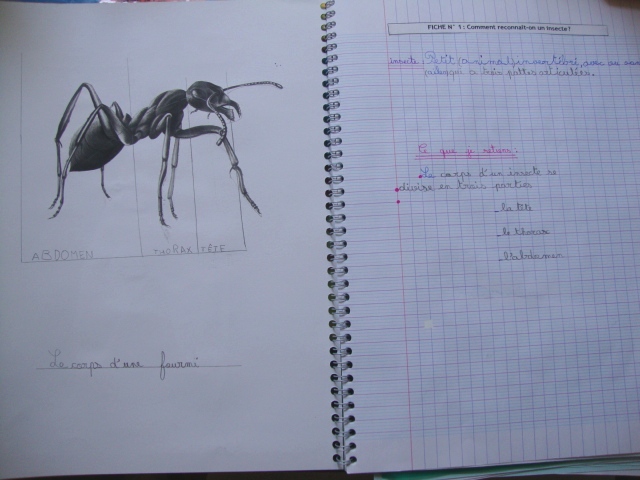 ABDOMEN THORAX TÊTE
Le corps d'une fourmi
FICHE N° 1 : Comment reconnaît-on un insecte ?
insecte : Petit animal invertébré, avec au
a trois pattes articulées.
Ce que je retiens :
Le corps d'un insecte se
divise en trois parties
_la tête
_le thorax
_l'abdomen